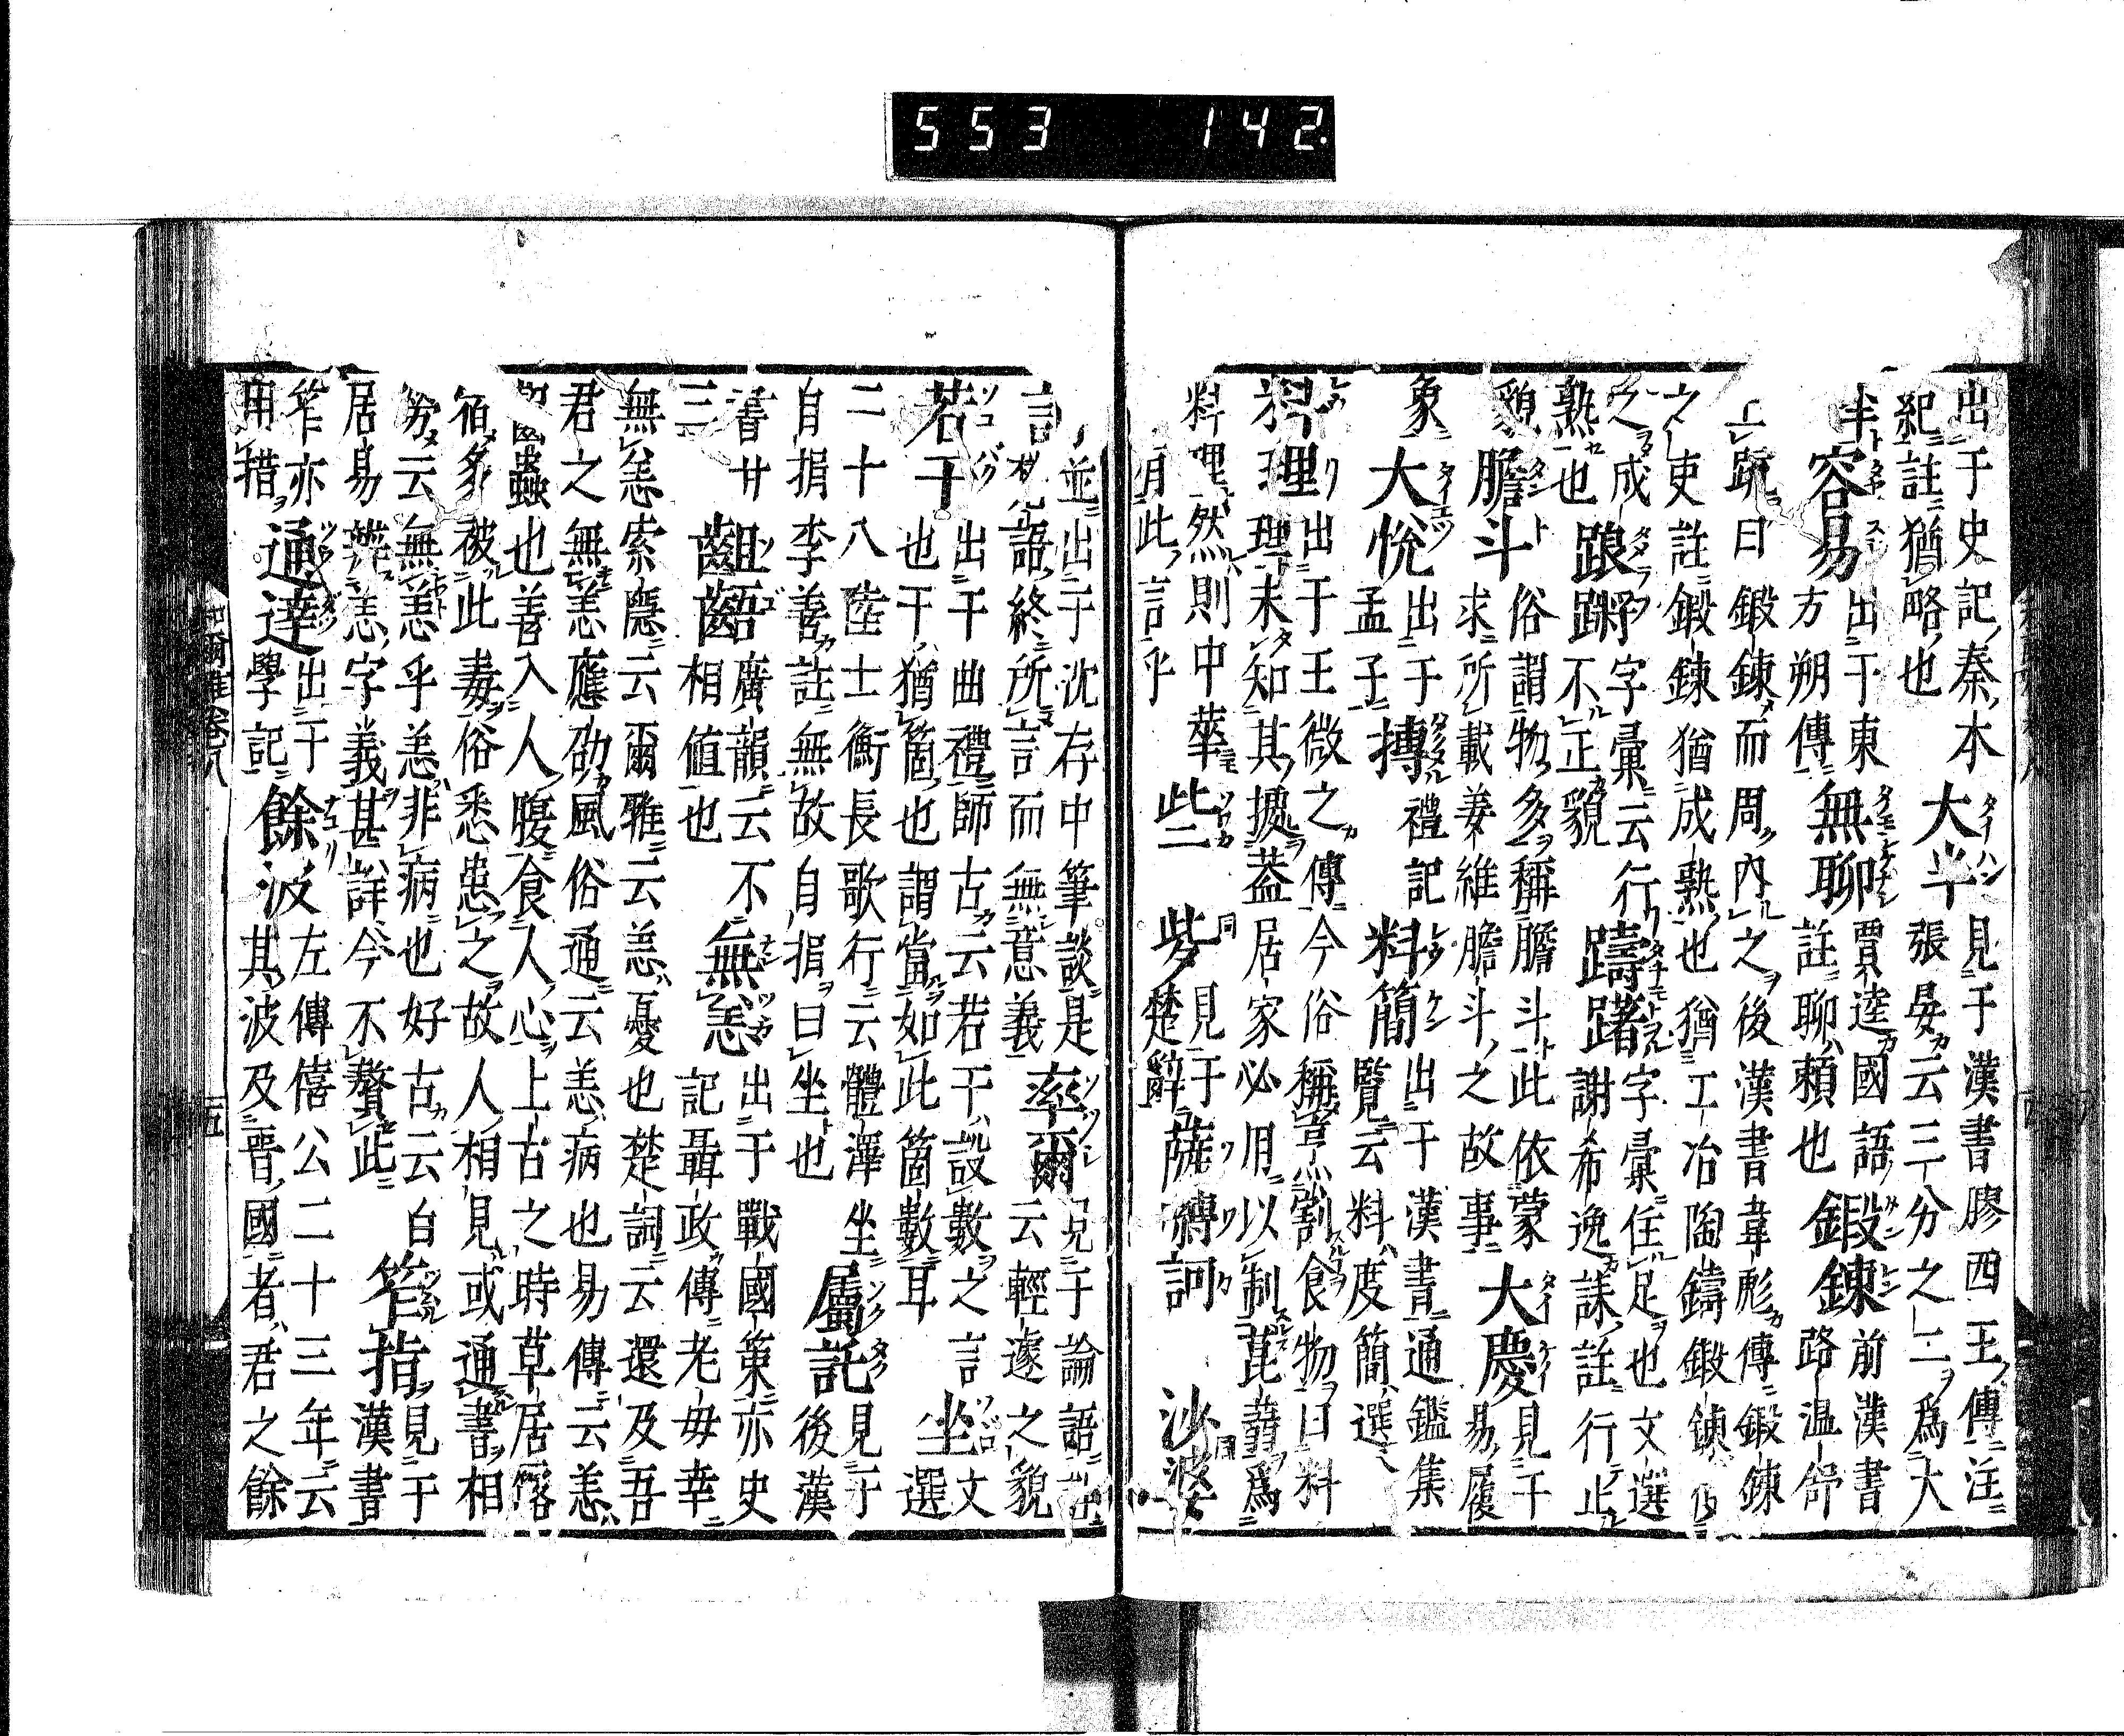 出于史記秦本
紀註猶略也
大半
見于漢書膠西王傳注
張晏云三分之二爲大
半
容易
出于東
方朔傳
無聊
賈逵國語
註聊頼也
鍛錬
前漢書
路温舒
上疏曰鍛錬而周内之後漢書韋彪傳鍛錬
之吏註鍛錬猶成熟也猶工冶陶鑄鍛錬
之成
熟也
踉蹡
字彙云行
不正貌
躊躇
字彙住足也文選
謝希逸誄註行止
貌
膽斗
俗謂物多稱膽斗此依蒙
求所載姜維膽斗之故事
大慶
見于
易履
象
大悅
出于
孟子
摶
禮記
料簡
出于漢書通鑑集
覽云料度簡選
料理
出于王微之傳今俗稱烹割食物曰料
理未知其據蓋居家必用以制菎蒻爲
料理然則中華
用此言乎
些

同
見于
楚辭
薩縛訶
沙婆
同
並出于沈存中筆談是
語終所言而無意義
率爾
見于論語註
云輕遽之貌
若干
出于曲禮師古云若干設數之言
也干猶箇也謂當如此箇數耳
坐
文
選
二十八陸士衡長歌行云體澤坐
自捐李善註無故自捐曰坐也
屬託
見于
後漢
書廿
三
齟齬
廣韻云不
相値也
無恙
出于戰國策亦史
記聶政傳老母幸
無恙索隱云爾雅云恙憂也楚詞云還及吾
君之無恙應劭風俗通云恙病也易傳云恙
齧蟲也善入人腹食人心上古之時草居露
宿多被此毒俗悉患之故人相見或通書相
勞云無恙乎恙非病也好古云白
居易辨恙字義甚詳今不贅此
笮指
見于
漢書
笮亦
用措
通達
出于
學記
餘波
左傳僖公二十三年云
其波及晉國者君之餘
和爾雅卷八
五
553 142.